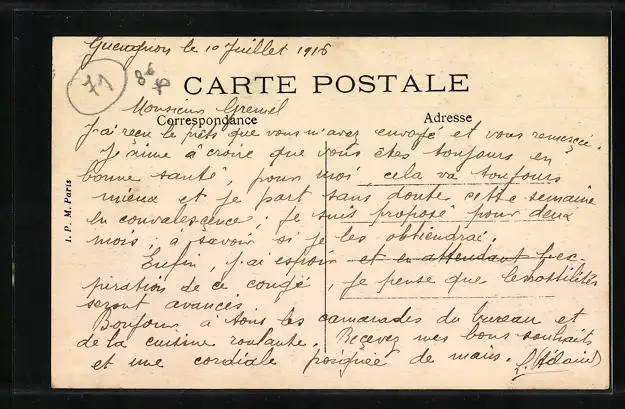 Gueugnon le 10 Juillet 1916
71
CARTE POSTALE
Monsieur Gremel
Correspondance
Adresse
J'ai reçu le prêts que vous m'avez envoyé et vous remercie.
Je aime à croire que vous êtes toujours en
bonne santé, pour moi, cela va toujours
mieux et je part sans doute cette semaine
en convalesçence; je suis proposé pour deux
mois, à savoir si je les obtiendrai.
Enfin, j'ai espoir et en attendant l'ex-
piration de ce congé, je pense que les hostilités
seront avancés
Bonjour à tous les camarades du bureau et
de la cuisine roulante. Reçevez mes bons souhaits
et une cordiale poignée de mains.
I. P. M. Paris